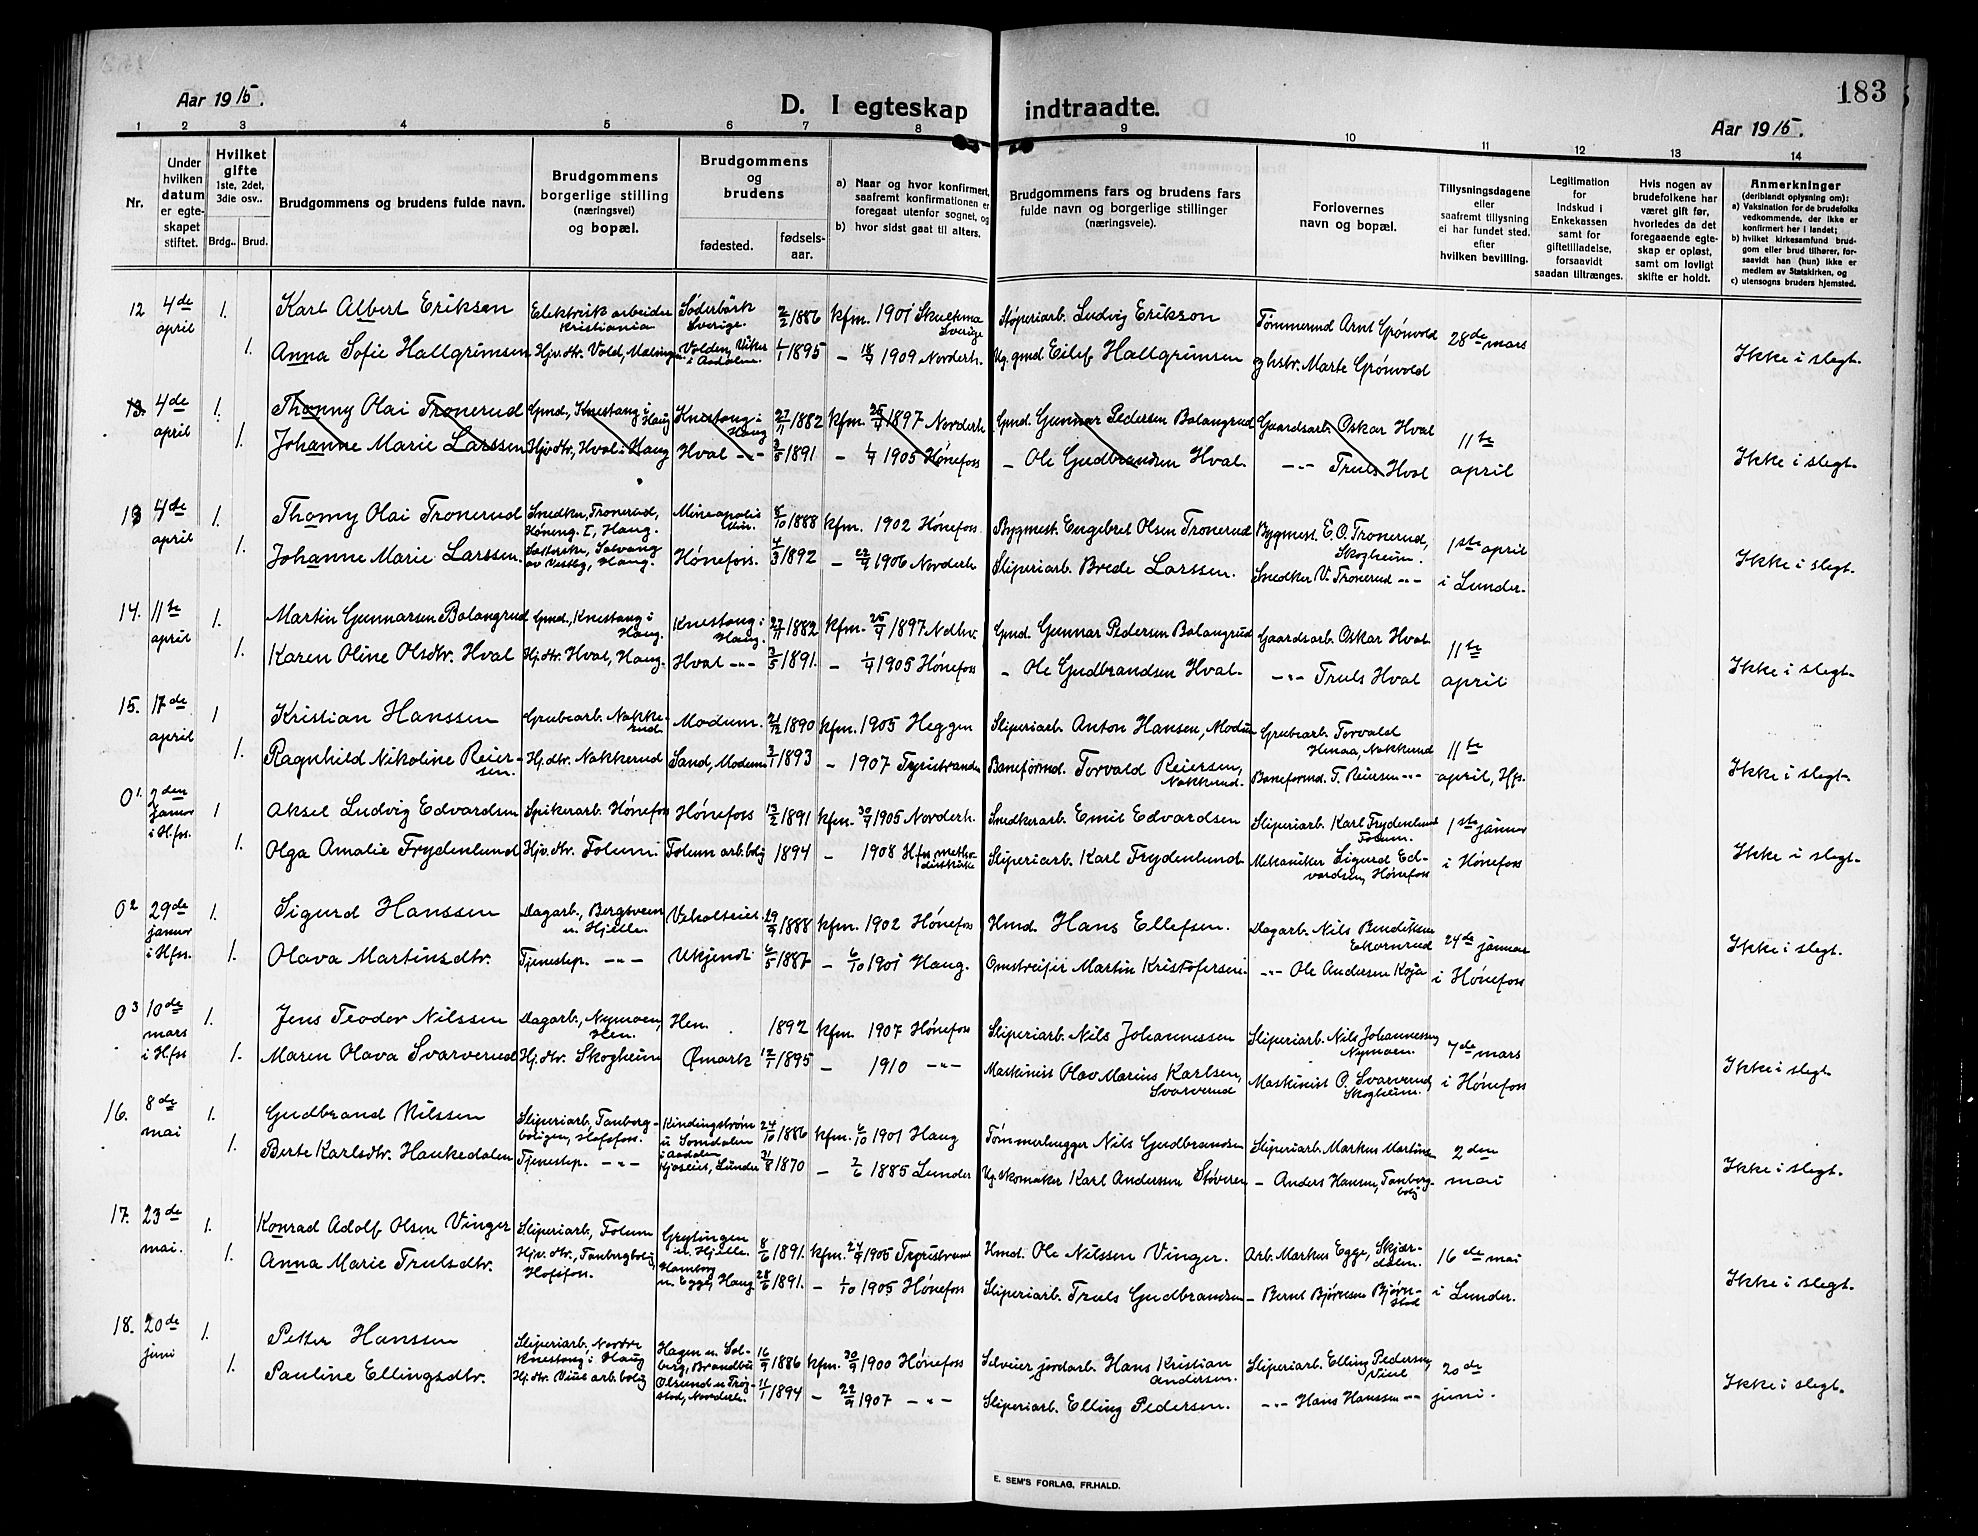 183
Aar 1915.
D. I egteskap indtraadte.
Aar 1915.
1 2 3 4 5 6 7 8 9 10 11 12 13 14
Nr.
Under hvilken datum er egteskapet stiftet.
Hvilket gifte 1ste, 2det, 3die osv..
Brdg.. Brud.
Brudgommens og brudens fulde navn.
Brudgommens borgerlige stilling (næringsvei) og bopæl.
Brudgommens og brudens
fødested.
fødselsaar.
a) Naar og hvor konfirmert, saafremt konfirmationen er foregaat utenfor sognet, og
b) hvor sidst gaat til alters.
Brudgommens fars og brudens fars fulde navn og borgerlige stillinger (næringsveie).
Forlovernes navn og bopæl.
Tillysningsdagene eller saafremt tillysning ei har fundet sted, efter hvilken bevilling.
Legitimation for Indskud i Enkekassen samt for giftetilladelse, forsaavidt saadan tiltrænges.
Hvis nogen av brudefolkene har været gift før, hvorledes da det foregaaende egteskap er opløst, samt om lovligt skifte er holdt.
Anmerkninger (deriblandt oplysning om):
a) Vaksination for de brudefolks vedkommende, der ikke er konfirmert her i landet;
b) hvilket kirkesamfund brudgom eller brud tilhører, forsaavidt han (hun) ikke er medlem av Statskirken, og
c) utensogns bruders hjemsted.
12 4de april 1. Karl Albert Eriksen Elektrisk arbeider Kristiania Söderbärk Sverige. 2/2 1886 kfm. 1901 Skultuna Sverige Støperiarb. Ludvig Erikson Tømmermd Arnt Grönvold 28de mars
1. Anna Sofie Hallgrimsen Hjv. dtr. Vold, Maling Volden, Viker i Aadalen 1/1 1895 – 18/9 1909 Norderh. Ug. gmd Eilef Hallgrimsen og hstr. Marte Grönvold Ikke i slegt.
13. 4de april 1. Thomy Olai Tronerud Gmd, Knestang i Haug Knestang i Haug 27/11 1882 kfm 26/9 1897 Norderh. Gmd. Gunnar Pedersen Bolangrud Gaardsarb. Oskar Hval 11te
1. Johanne Marie Larssen Hjv. dtr, Hval i Haug Hval -"- 3/5 1891 – 1/9 1905 Hønefoss – Ole Gudbrandsen Hval. -"- Truls Hval april Ikke i slegt.
13 4de april 1. Thomy Olai Tronerud Snedker, Tronerud, Høneng. I, Haug. Mineapolis Min. 8/10 1888 kfm. 1902 Hønefoss. Bygmest. Engebret Olsen Tronerud Bygmest. E. O. Tronerud, Skogheim. 1ste april
1. Johanne Marie Larssen. av Vestby, Haug. Hønefoss. 4/3 1892 – 23/9 1906 Norderh. Sliperiarb. Brede Larssen. Snedker V. Tronerud -"- i Lunder. Ikke i slegt.
14. 11te april 1. Martin Gunnarsen Bolangrud Gmd., Knestang i Haug. Knestang i Haug. 27/11 1882 kfm. 26/9 1897 Ndhv. Gmd. Gunnar Pedersen Bolangrud Gaardsarb. Oskar Hval 11te
1. Karen Oline Olsdtr. Hval Hj. dtr. Hval, Haug. Hval -"- 3/5 1891. – 1/9 1905 Hønefoss – Ole Gudbrandsen Hval. -"- Truls Hval april Ikke i slegt.
15. 17de april 1 Kristian Hanssen Grubearb. Nakkerud Modum. 21/12 1890 kfm. 1905 Heggen Sliperiarb. Anton Hansen, Modum Grubearb. Torvald Hmaa, Nakkerud 11te
1. Ragnhild Nikoline Reiersen. Hj. dtr. Nakkerud Sand, Modum 3/1 1893 – 1907 Tyristranden Baneformd. Torvald Reiersen, Nakkerud. Baneformd. T. Reiersen -"- april, Hfs. Ikke i slegt.
01. 2den januar i Hfss. 1 Aksel Ludvig Edvardsen Spikerarb. Hønefoss Hønefoss 13/2 1891 kfm. 30/9 1905 Norderh. Snedkerarb. Emil Edvardsen Sliperiarb. Karl Frydenlund Folum. 1ste januar
1. Olga Amalie Frydenlund Hjv. dtr. Folum. Folum arb. bolig 1894 – 1908 Hfs metho-distkirke Sliperiarb. Karl Frydenlund Mekaniker Sigurd Edvardsen, Hønefoss i Hønefoss Ikke i slegt.
02 29de januar i Hfss. 1. Sigurd Hanssen Dagarb., Bergsveen u. Hjelle. Veholteiet. 29/9 1888 kfm. 1902 Hønefoss Hmd. Hans Ellefsen. Dagarb. Nils Bendiksen Ekornrud 24de januar
1. Olava Martinsdtr. Tjenestep. -"- Ukjendt. 6/5 1887 – 6/10 1901 Haug. Omstreifer Martin Kristofersen -"- Ole Andersen Koja i Hønefoss Ikke i slegt.
03 10de mars i Hfss 1. Jens Teodor Nilssen Dagarb., Nymoen, Hen. Hen. 1892 kfm. 1907 Hønefoss Sliperiarb. Nils Johannessen Sliperiarb. Nils Johannessen Nymoen. 7de mars
1. Maren Olava Svarverud Hj. dtr. Skogheim Ømark 12/1 1895 – 1910 -"- Maskinist Olav Marius Karlsen, Svarverud Maskinist O. Svarverud, Skogheim. i Hønefoss Ikke i slegt.
16. 8de mai 1. Gudbrand Nilssen Sliperiarb. Tanbergboligen, Hofsfoss. Kindingstrøm u Somdalen i Aadalen 24/10 1886 kfm. 6/10 1901 Haug Tømmerhugger Nils Gudbrandsen Sliperiarb. Markus Martinsen 2den
1. Berte Karlsdtr. Haukedalen Tjenestep. -"- Kjoseiet, Lunder 31/8 1870 – 7/6 1885 Lunder Ug. skomaker Karl Andersen Støveren – Anders Hansen, Tanbergbolig mai Ikke i slegt.
17. 23de mai. 1. Konrad Adolf Olsen Vinger Sliperiarb, Folum Grytingen u. Hjelle. 8/6 1891. kfm. 24/9 1905 Tyristrand Hmd. Ole Nilssen Vinger. Arb. Markus Egge, Skjærdalen. 16de mai
1. Anna Marie Trulsdtr. Hjv. dtr., Tanbergbolig, Hofsfoss. Hamborg u. Egge, Haug 28/6 1891. – 1/10 1905 Hønefoss Sliperiarb. Truls Gudbrandsen – Bernt Bjørnsen Bjørnstad i Lunder. Ikke i slegt.
18. 20de juni 1. Petter Hanssen Sliperiarb, Nordre Knestang i Haug Hagen u. Solberg, Brandbu 16/9 1886 kfm. 30/9 1900 Hønefoss Selveier jordarb. Hans Kristian Andersen. Sliperiarb. Elling Pedersen, Viul 20de
1. Pauline Ellingsdtr. Hj. dtr. Viul arb. bolig Olsund u Trøgstad, Norderh. 11/1 1894 – 22/9 1907 -"- Sliperiarb. Elling Pedersen. -"- Hans Hanssen -"- juni. Ikke i slegt.
E. SEM'S FORLAG, FR.HALD.